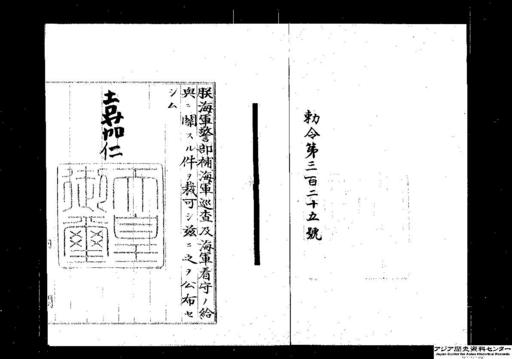 勅令第三百二十五號
朕海軍警部補海軍巡査及海軍看守ノ給
與ニ關スル件ヲ裁可シ茲ニ之ヲ公布セ
シム
嘉仁
天皇
御璽
アジア歴史資料センター
Japan Center for Asian Historical Records